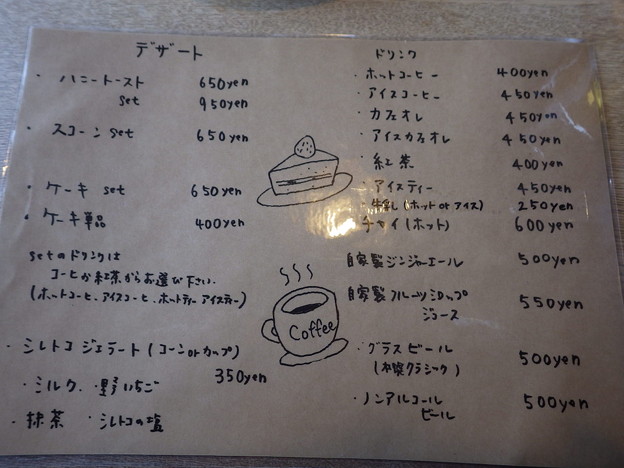 デザート
・ハニートースト 650yen
set 950yen
・スコーン set 650yen
・ケーキ set 650yen
・ケーキ単品 400yen
setのドリンクは
コーヒか紅茶からお選び下さい.
(ホットコーヒ、アイスコーヒ、ホットティーアイスティー)
・シレトコ ジェラート(コーンorカップ)
350yen
・ミルク ・野いちご
・抹茶 ・シレトコの塩
Coffee
ドリンク
・ホットコーヒー 400yen
・アイスコーヒー 450yen
・カフェオレ 450yen
・アイスカフェオレ 450yen
・紅茶 400yen
・アイスティー 450yen
・牛乳(ホット or アイス) 250yen
チャイ(ホット) 600yen
自家製ジンジャーエール 500yen
自家製フルーツシロップ
ジュース 550yen
・グラスビール
(札幌クラシック) 500yen
・ノンアルコール
ビール 500yen